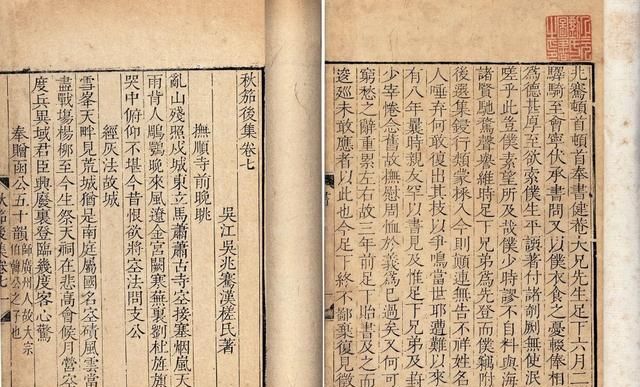 兆騫頓首頓首奉書健菴大兄先生足下六月二
驛騎至會甯伏承書問又以僕衣食之憂輟俸相
為德甚厚至欲索僕生平譔著付諸剞劂無使泯
嗟乎此豈僕素望所及哉僕少時謬不自料與海
諸賢馳騖聲譽維時足下兄弟為先登而僕竊附
後選集鋟行頗蒙採入今則顛連無告不祥姓名
人唾弃何敢復出其技以爭鳴當世耶遭難以來
有八年曩時親友罕見書及惟足下兄弟及封
少宰惓念舊故撫慰周恤於義為已過矣又何可
窮愁之辭重累左右故三年前足下貽書及之而
逡廵未敢應者以此也今足下終不鄙棄復見徵
秋笳後集卷七
吳江吳兆騫漢槎氏著
撫順寺前晚眺
亂山殘照戍城東立馬蕭蕭古寺空接塞烟嵐天
雨背人鵰鶚晚來風遼金宮闕寒蕪裏劉杜旌旗
哭中俯仰不堪今昔恨欲將空法問支公
經灰法故城
雪峯天畔見荒城猶是南庭屬國名空磧風雲當
盡戰場楊柳至今生祭天祠在悲高會候月營空
度兵異域君臣興廢裏登臨幾度客心驚
奉贈函公五十韻師廣州人故大宗伯韓公子也
秋笳後集卷七